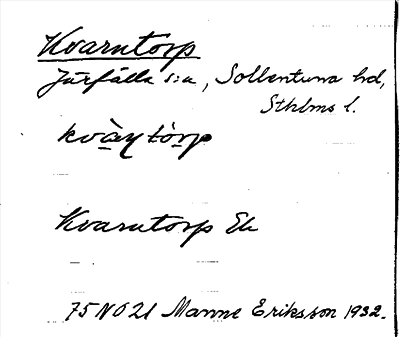 Kvarntorp
Järfälla s:n, Sollentuna hd,
Sthlms l.
kvàṇtòrp
Kvarntorp Ek
75 NO 21 Manne Eriksson 1932.